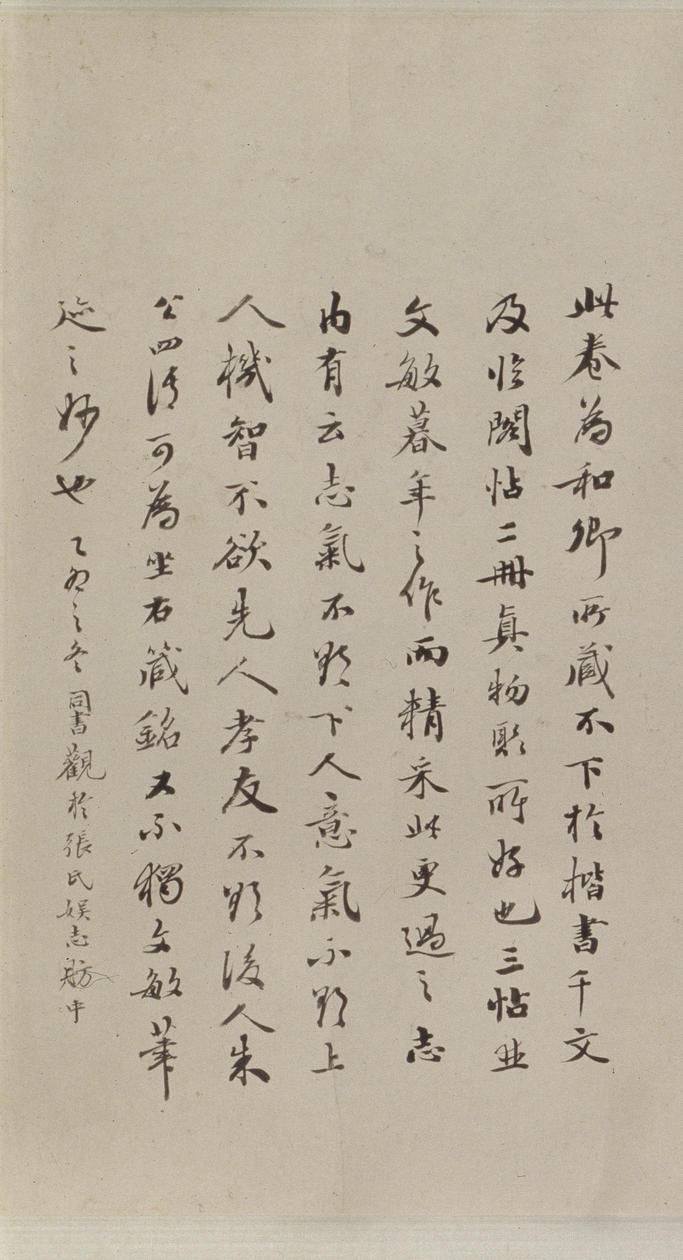 此卷為和卿所藏不下於楷書千文
及臨閣帖二冊真物聚所好也三帖並
文敏暮年之作而精采此更過之志
內有云志氣不欲下人意氣不欲上
人機智不欲先人孝友不欲後人朱
公四語可為坐右箴銘又不獨文敏筆
跡之妙也乙之冬同書觀於張氏娛志舫中